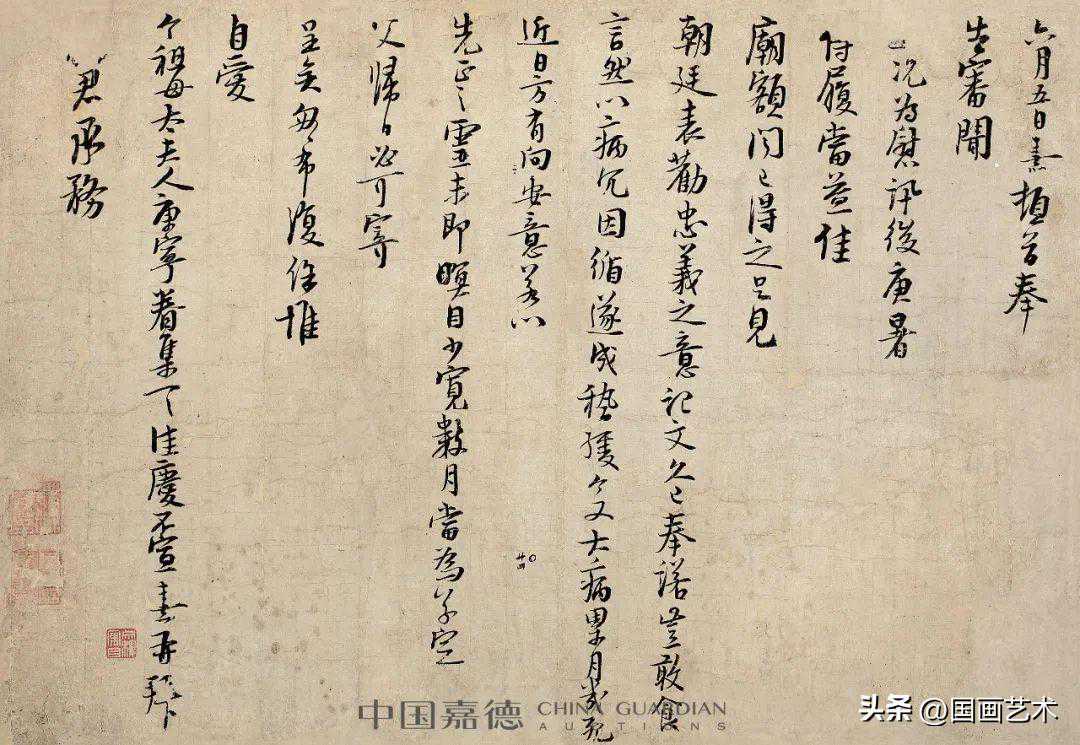 六月五日熹頓首奉
告審聞
比況為慰訊後庚暑
侍履當益佳
廟額聞已得之足見
朝廷表勸忠義之意記文久已奉諾豈敢食
言然以病冗因循遂成稽緩今又大病累月幾死
近日方有向安意若以
先正之靈未即瞑目少寬數月當為草定
父歸日必可寄
呈矣匆匆布復餘惟
自愛
令祖母太夫人康寧眷集一一佳慶不宣熹再拜
君承務
中国嘉德 CHINA GUARDIAN AUCTIONS
头条 @国画艺术